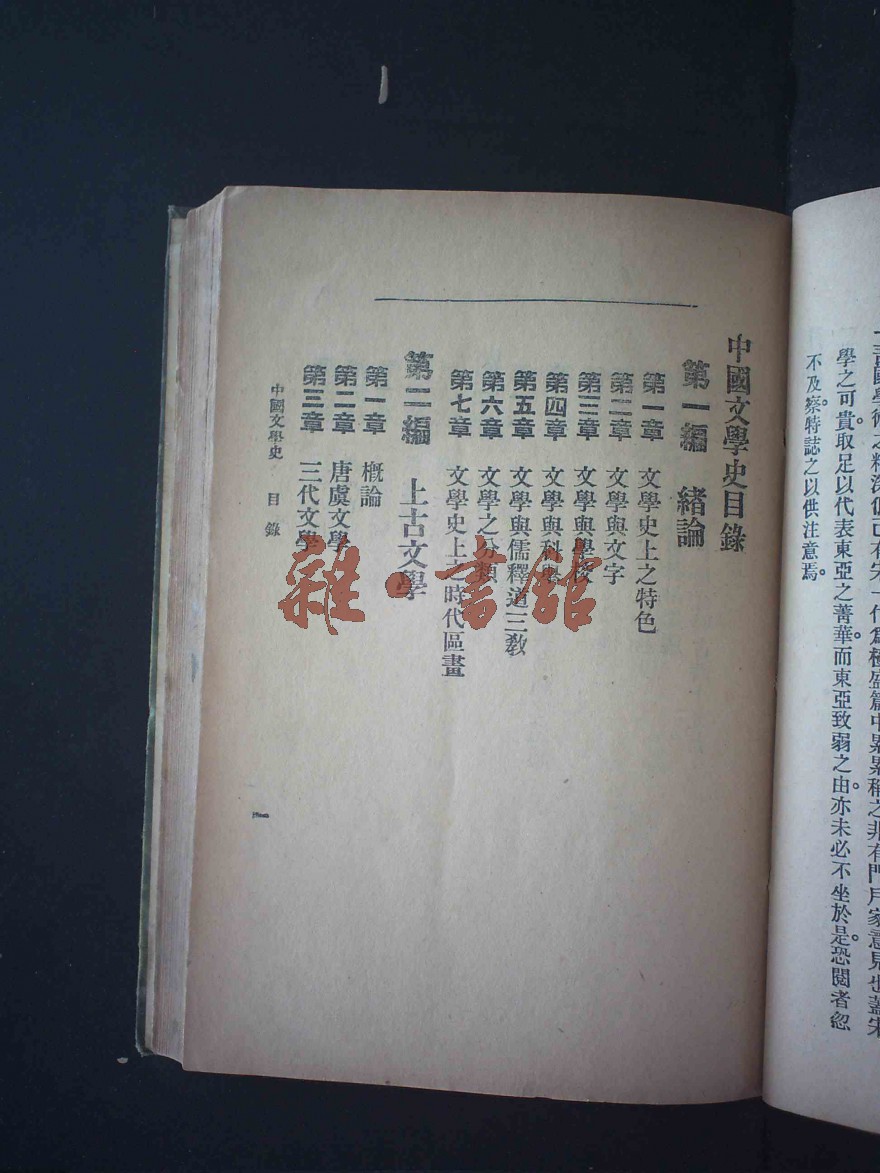 國學術之精深 有宋一代爲極盛篇中累累稱之非有門戶 意見也蓋宋
學之可貴。取足以代表東亞之菁華。而東亞致弱之由。亦未必不坐於是。恐閱者忽
不及察。特誌之以供注意焉。
中國文學史目錄
第一編 緒論
第一章 文學史上之特色
第二章 文學與文字
第三章 文學與學校
第四章 文學與科舉
第五章 文學與儒釋道三教
第六章 文學之分類
第七章 文學史上之時代區畫
第二編 上古文學
第一章 槪論
第二章 唐虞文學
第三章 三代文學
中國文學史 目錄
一
雜·書館